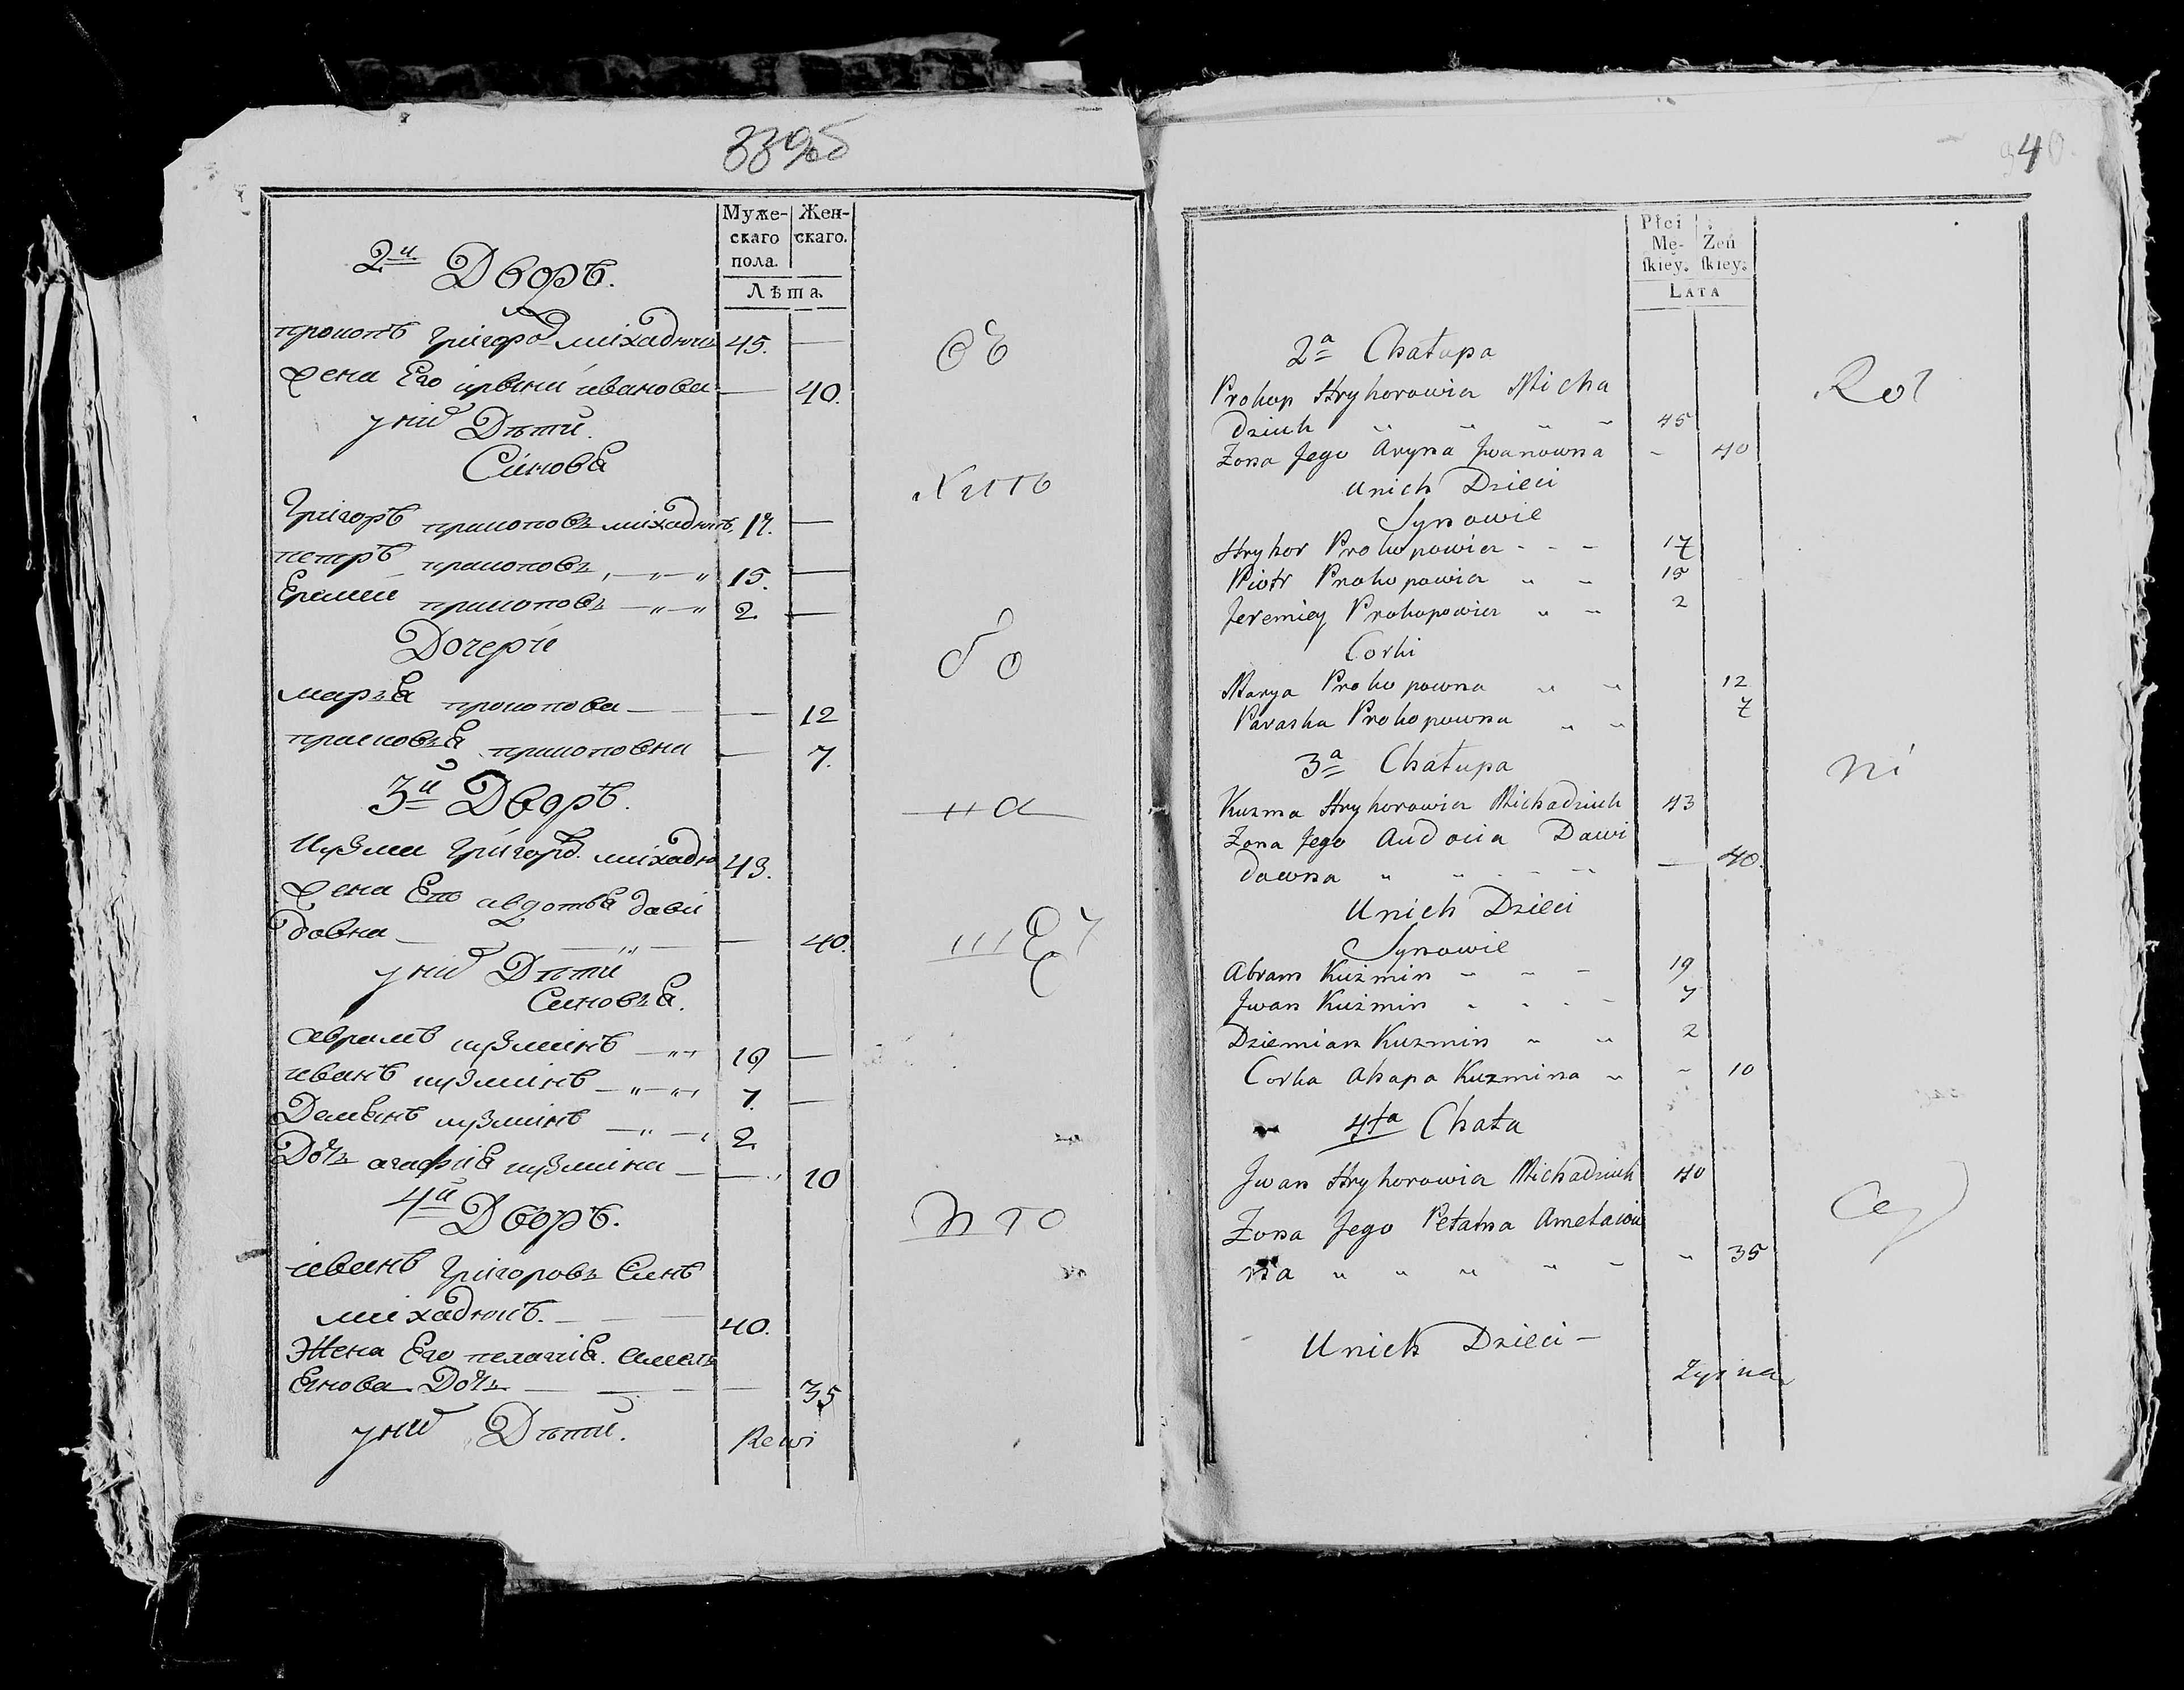 339об
Муже-
скаго
пола.
Жен-
скаго.
Лѣта.
2й Дворъ.
прокопъ Григоров михадюкъ 45. —
жена Его ирына иванова — 40.
у них Дѣти.
Синовя
Григоръ пракоповъ михадюкъ 17. —
петръ пракоповъ — „ — „ 15. —
Еремей пракоповъ — „ — „ 2. —
Дочери
маря прокопова — — 12
прасковя пракоповна — 7.
3й Дворъ.
кузма Григоров. михадю 43.
жена Его авдотя дави
довна — „ — — 40.
у них Дѣти
Синовя.
аврамъ кузминъ — „ 19 —
иванъ кузминъ — „ — „ 7. —
Демянъ кузминъ — „ — „ 2
Дочь агафия кузмина — — 10
4й Дворъ.
иванъ Григоровъ Синъ
михадюкъ. — — 40.
Жена Его пелагия. Амель
янова Дочь — — — — 35
у них Дѣти.
Rewi
оъ
хить
бо
на
що
340.
Płci
Mę-
ſkiey.
Żeń
ſkiey.
LATA
2a Chałupa
Prokop Hryhorowicz Micha
dziuk „ „ „ - 45
Zona Jego Aryna Jwanowna - 40
Unich Dzieci
Synowie
Hryhor Prokopowicz - - - 17
Piotr Prokopowicz „ - 15
Jeremiey Prokopowicz „ - 2
Corki
Marya Prokopowna „ „ 12
Paraska Prokopowna „ „ 7
3a Chałupa
Kuzma Hryhorowicz Michadziuk 43
Zona Jego Audocia Dawi
downa „ „ - - - — 40.
Unich Dzieci
Synowie
Abram Kuźmin - - - 19
Jwan Kuźmin - - - - 7
Dziemian Kuzmin „ „ 2
Corka Ahapa Kuzmina „ - 10
4ta Chata
Jwan Hryhorowicz Michadziuk 40
Zona Jego Pełahia Amelaiow
na „ „ „ „ - „ 35
Unich Dzieci —
Rol
ni
cy